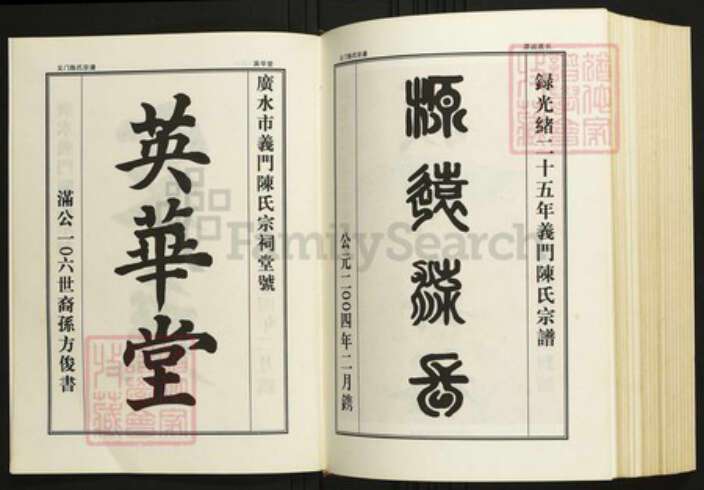 錄光緒二十五年義門陳氏宗譜
源遠流長
公元二〇〇四年二月鐫
義门陈氏宗谱
英华堂
廣水市義門陳氏宗祠堂號
英華堂
滿公一〇六世裔孫方俊書
FamilySearch